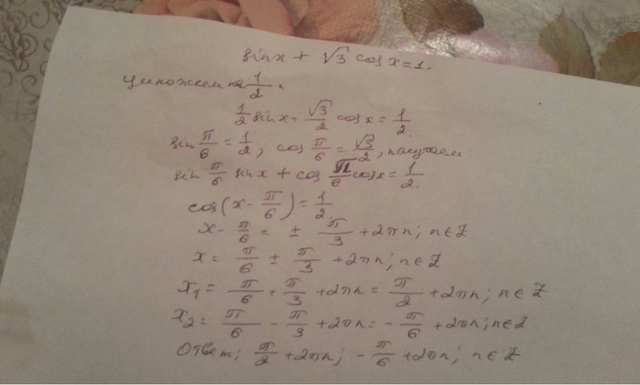 sin x + √3 cos x = 1.
Умножим на 1/2.
1/2 sin x + √3/2 cos x = 1/2.
sin π/6 = 1/2, cos π/6 = √3/2, получаем:
sin π/6 sin x + cos π/6 cos x = 1/2.
cos(x - π/6) = 1/2.
x - π/6 = ± π/3 + 2πn; n ∈ Z
x = π/6 ± π/3 + 2πn; n ∈ Z
x₁ = π/6 + π/3 + 2πn = π/2 + 2πn; n ∈ Z
x₂ = π/6 - π/3 + 2πn = - π/6 + 2πn; n ∈ Z
Ответ: π/2 + 2πn; - π/6 + 2πn; n ∈ Z